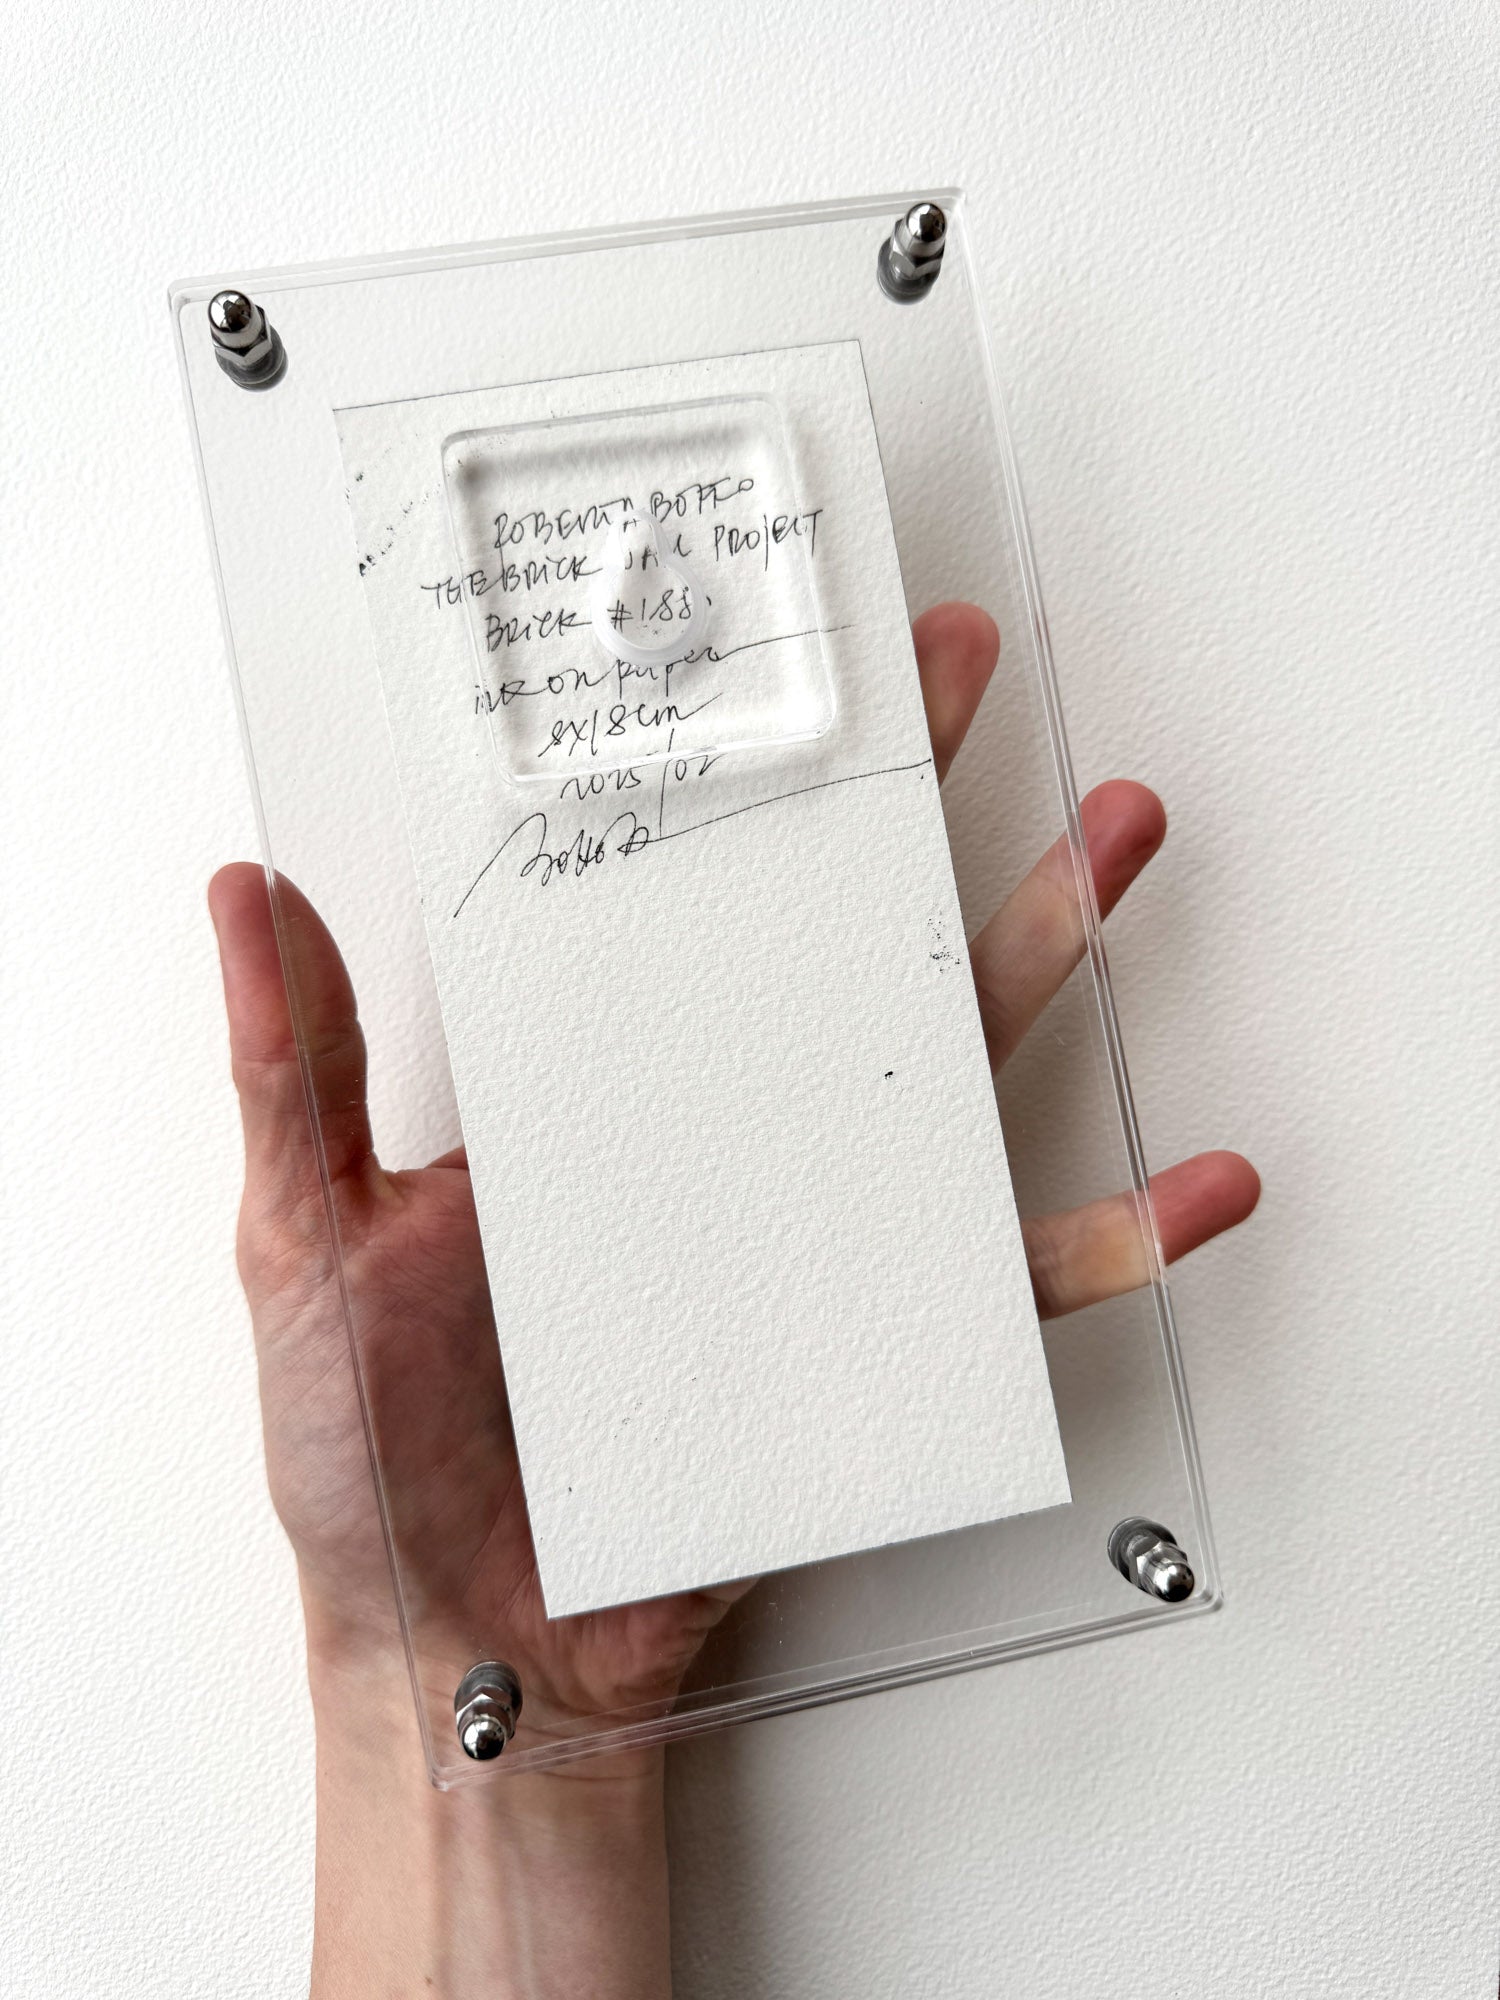 ROBERTA BOFFO
THE BRICK WALL PROJECT
BRICK #188.
ink on paper
8x18cm
2025/02